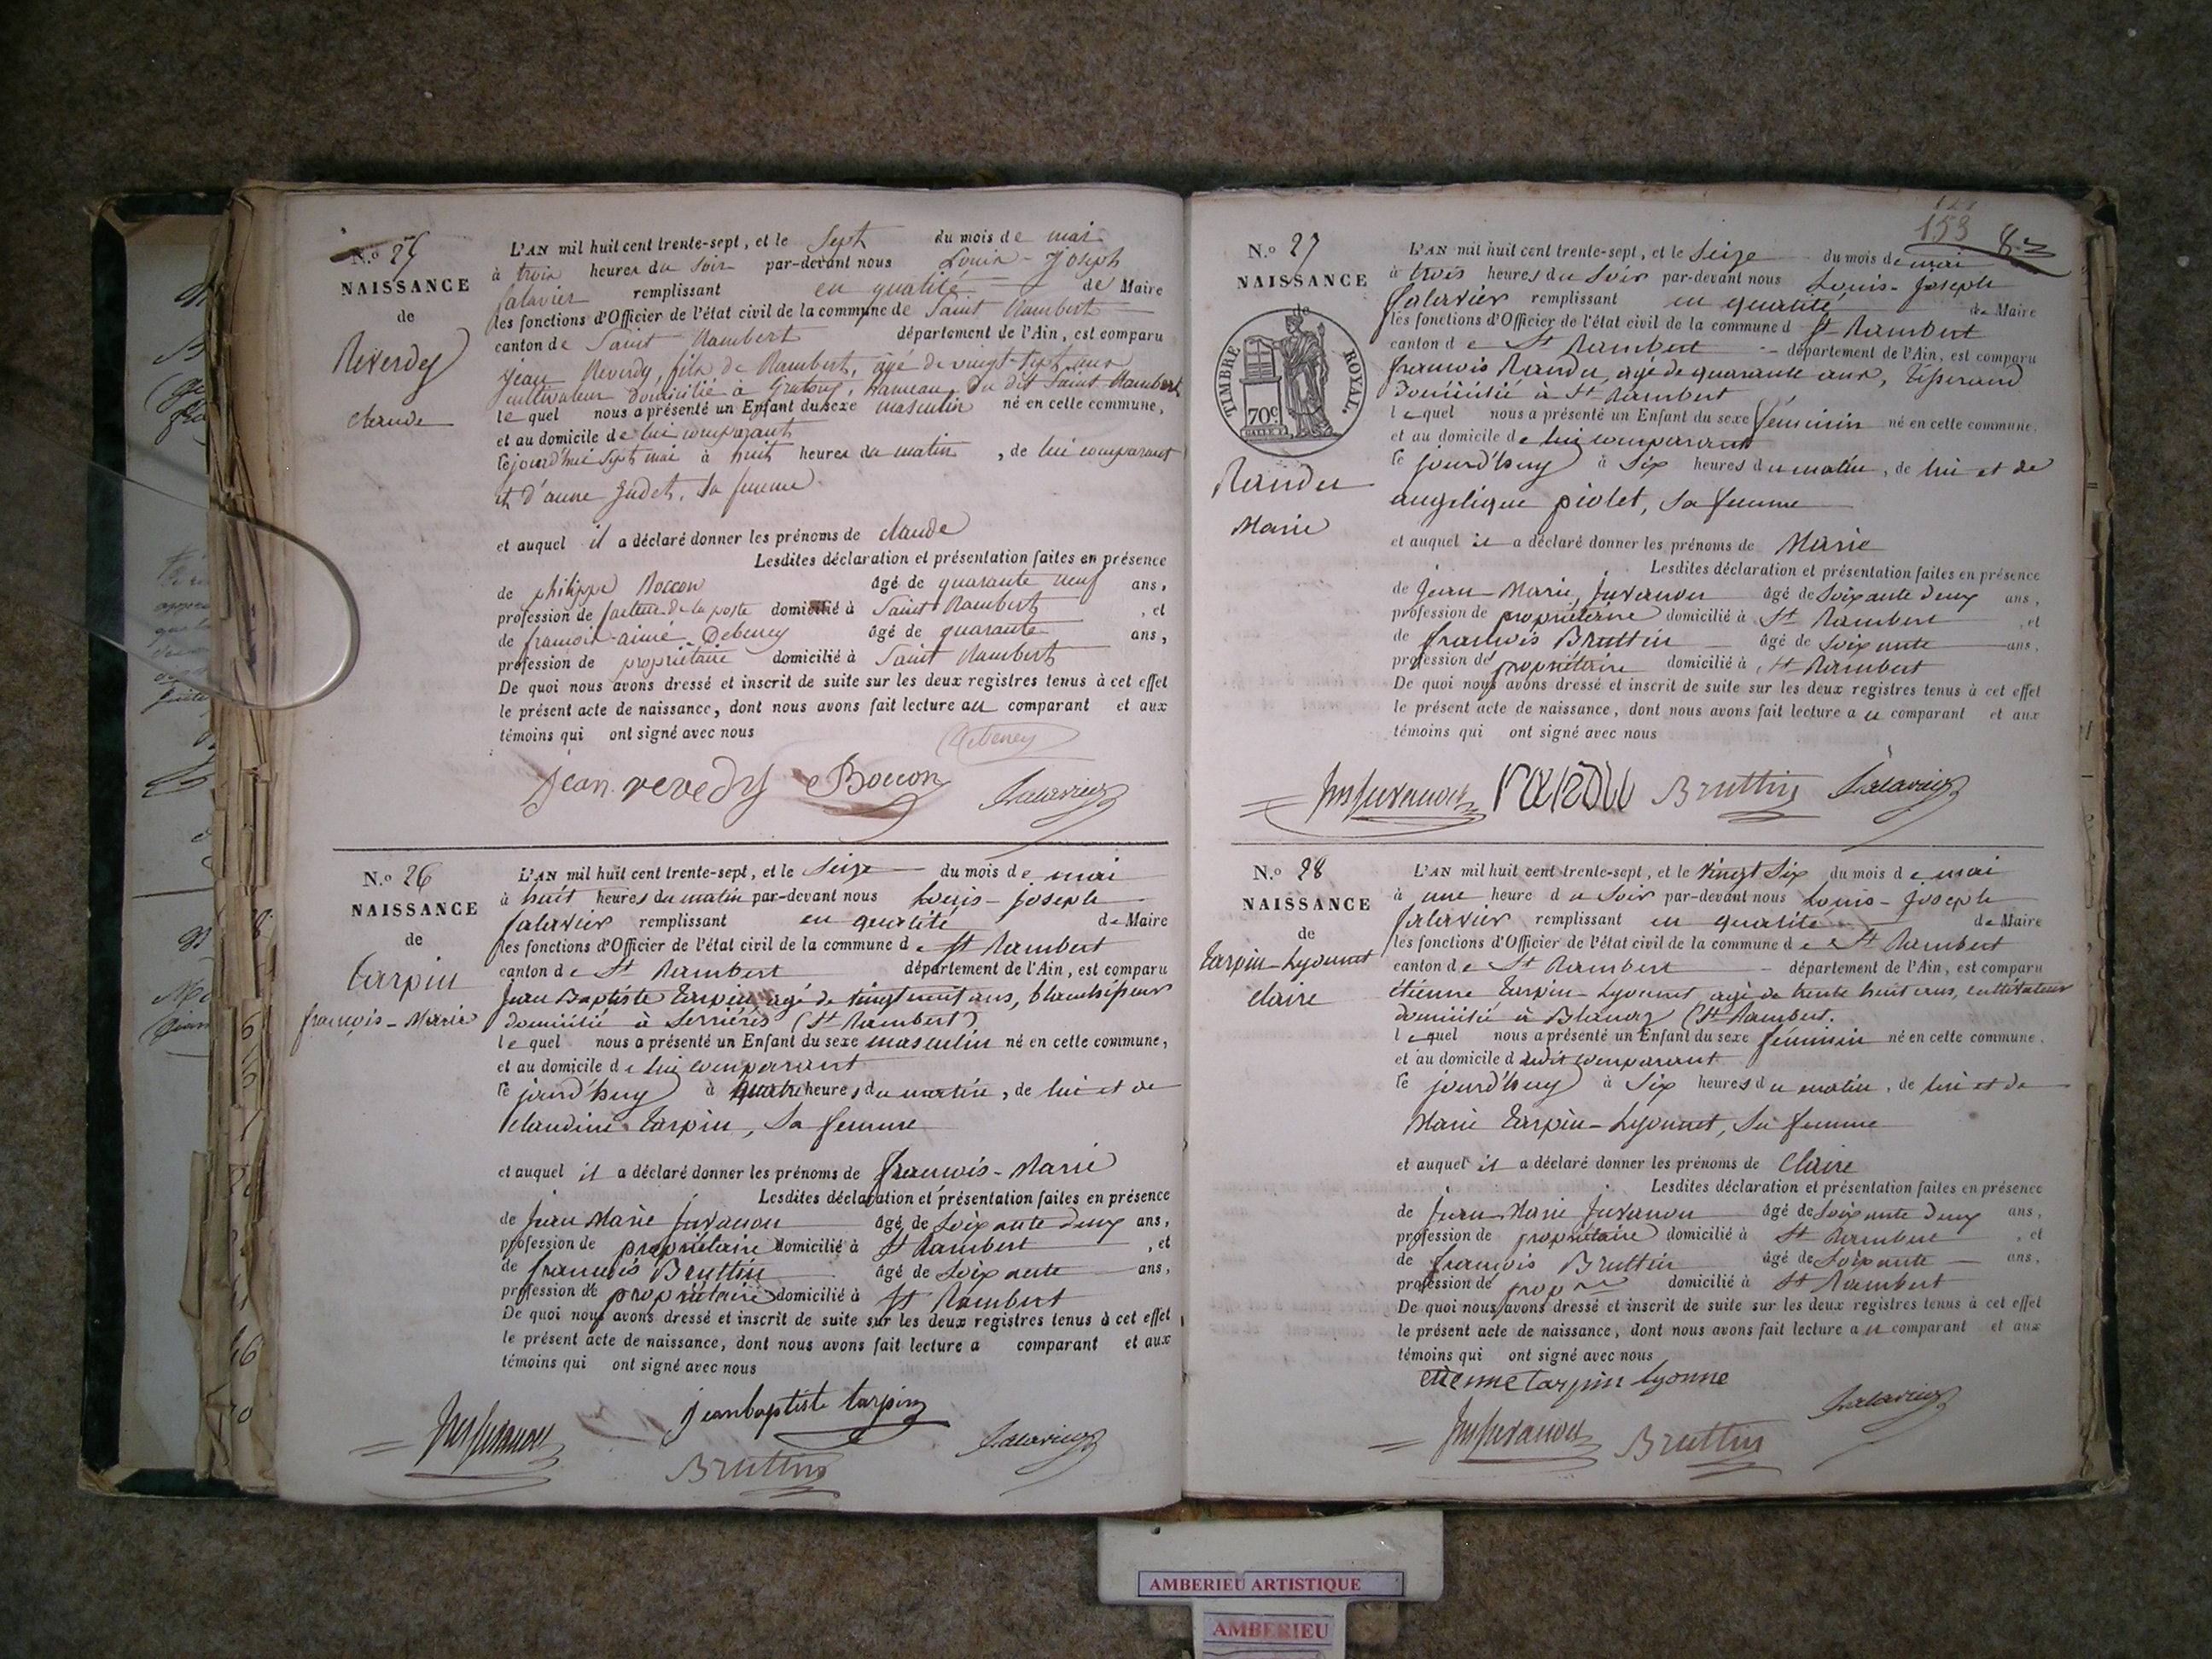 N.o 25
NAISSANCE
de
Reverdy
claude
L'AN mil huit cent trente-sept, et le Sept du mois de mai
à trois heures du soir par-devant nous Louis-Joseph
Salavier remplissant en qualité de Maire
les fonctions d'Officier de l'état civil de la commune de Saint Rambert
canton de Saint Rambert département de l'Ain, est comparu
Jean Reverdy, fils de Rambert, âgé de vingt-sept ans
cultivateur domicilié à hameau du dit Saint Rambert
lequel nous a présenté un Enfant du sexe masculin né en cette commune,
et au domicile de lui comparant
le jourd'hui sept mai à huit heures du matin, de lui comparant
et d'anne Judet, sa femme
et auquel il a déclaré donner les prénoms de claude
Lesdites déclaration et présentation faites en présence
de philippe Boccon âgé de quarante neuf ans,
profession de facteur de la poste domicilié à Saint Rambert, et
de françois-aimé Debeney âgé de quarante ans,
profession de propriétaire domicilié à Saint Rambert
De quoi nous avons dressé et inscrit de suite sur les deux registres tenus à cet effet
le présent acte de naissance, dont nous avons fait lecture au comparant et aux
témoins qui ont signé avec nous
Debeney
Jean revedy Boccon Salavier
N.o 26
NAISSANCE
de
Tarpin
françois-Marie
L'AN mil huit cent trente-sept, et le Seize du mois de mai
à huit heures du matin par-devant nous Louis-Joseph
Salavier remplissant en qualité de Maire
les fonctions d'Officier de l'état civil de la commune de St Rambert
canton de St Rambert département de l'Ain, est comparu
Jean Baptiste Tarpin agé de vingt neuf ans, blanchisseur
domicilié à Serrières (St Rambert)
lequel nous a présenté un Enfant du sexe masculin né en cette commune,
et au domicile de lui comparant
le jourd'huy à quatre heures du matin, de lui et de
Claudine Tarpin, sa femme
et auquel il a déclaré donner les prénoms de françois-Marie
Lesdites déclaration et présentation faites en présence
de Jean Marie Juvanon âgé de soixante deux ans,
profession de propriétaire domicilié à St Rambert, et
de françois Bruttin âgé de Soixante ans,
profession de propriétaire domicilié à St Rambert
De quoi nous avons dressé et inscrit de suite sur les deux registres tenus à cet effet
le présent acte de naissance, dont nous avons fait lecture a comparant et aux
témoins qui ont signé avec nous
jeanbaptiste tarpin
Juvanon Bruttin Salavier
153
N.o 27
NAISSANCE
de
TIMBRE ROYAL.
70c
Randu
Marie
L'AN mil huit cent trente-sept, et le Seize du mois de mai
à trois heures du soir par-devant nous Louis-Joseph
Salavier remplissant en qualité de Maire
les fonctions d'Officier de l'état civil de la commune d St Rambert
canton de St Rambert département de l'Ain, est comparu
françois Randu, agé de quarante ans, tisserand
domicilié à St Rambert
lequel nous a présenté un Enfant du sexe féminin né en cette commune,
et au domicile de lui comparant
le jourd'huy à Six heures du matin, de lui et de
angelique piolet, sa femme
et auquel il a déclaré donner les prénoms de Marie
Lesdites déclaration et présentation faites en présence
de Jean-Marie Juvanon âgé de Soixante deux ans,
profession de propriétaire domicilié à St Rambert, et
de françois Bruttin âgé de Soixante ans,
profession de propriétaire domicilié à St Rambert
De quoi nous avons dressé et inscrit de suite sur les deux registres tenus à cet effet
le présent acte de naissance, dont nous avons fait lecture au comparant et aux
témoins qui ont signé avec nous
Juvanon Bruttin Salavier
N.o 28
NAISSANCE
de
Tarpin-Lyonnet
Claire
L'AN mil huit cent trente-sept, et le vingt Six du mois de mai
à une heure du Soir par-devant nous Louis-Joseph
Salavier remplissant en qualité de Maire
les fonctions d'Officier de l'état civil de la commune de St Rambert
canton de St Rambert département de l'Ain, est comparu
étienne Tarpin-Lyonnet agé de trente huit ans, cultivateur
domicilié à Blanaz (St Rambert.
lequel nous a présenté un Enfant du sexe féminin né en cette commune,
et au domicile dudit comparant
le jourd'huy à Six heures du matin, de lui et de
Marie Tarpin-Lyonnet, sa femme
et auquel il a déclaré donner les prénoms de Claire
Lesdites déclaration et présentation faites en présence
de Jean-Marie Juvanon âgé de Soixante deux ans,
profession de propriétaire domicilié à St Rambert, et
de françois Bruttin âgé de Soixante ans,
profession de propre domicilié à St Rambert
De quoi nous avons dressé et inscrit de suite sur les deux registres tenus à cet effet
le présent acte de naissance, dont nous avons fait lecture au comparant et aux
témoins qui ont signé avec nous
etienne tarpin lyonne
Juvanon Bruttin Salavier
AMBERIEU ARTISTIQUE
AMBERIEU